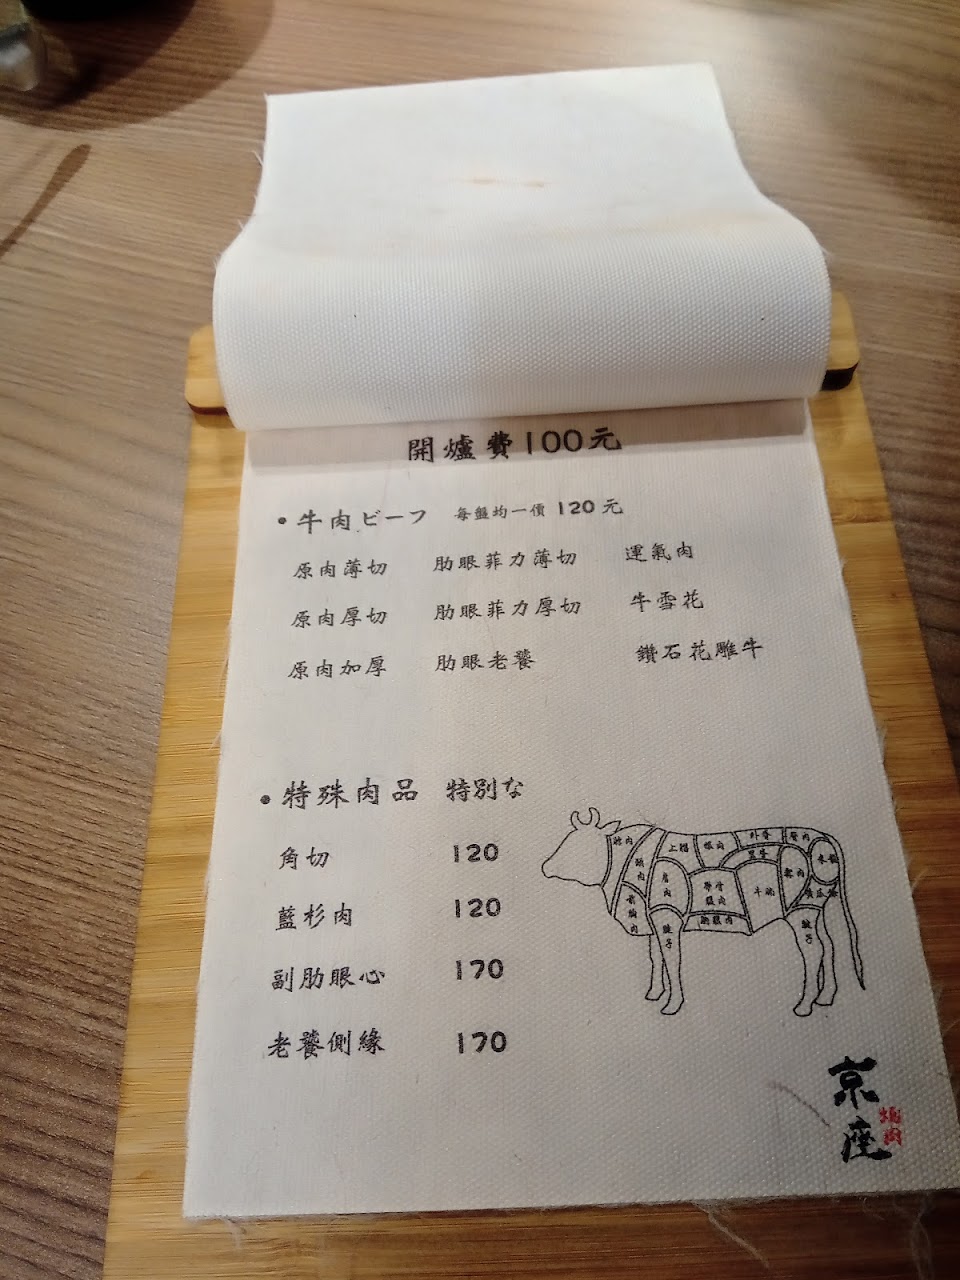 開爐費100元
•牛肉ビーフ 每盤均一價 120 元
原肉薄切 肋眼菲力薄切 運氣肉
原肉厚切 肋眼菲力厚切 牛雪花
原肉加厚 肋眼老饕 鑽石花雕牛
•特殊肉品 特別な
角切 120
藍杉肉 120
副肋眼心 170
老饕側緣 170
上腦
腱子
腱子
京座
燒肉